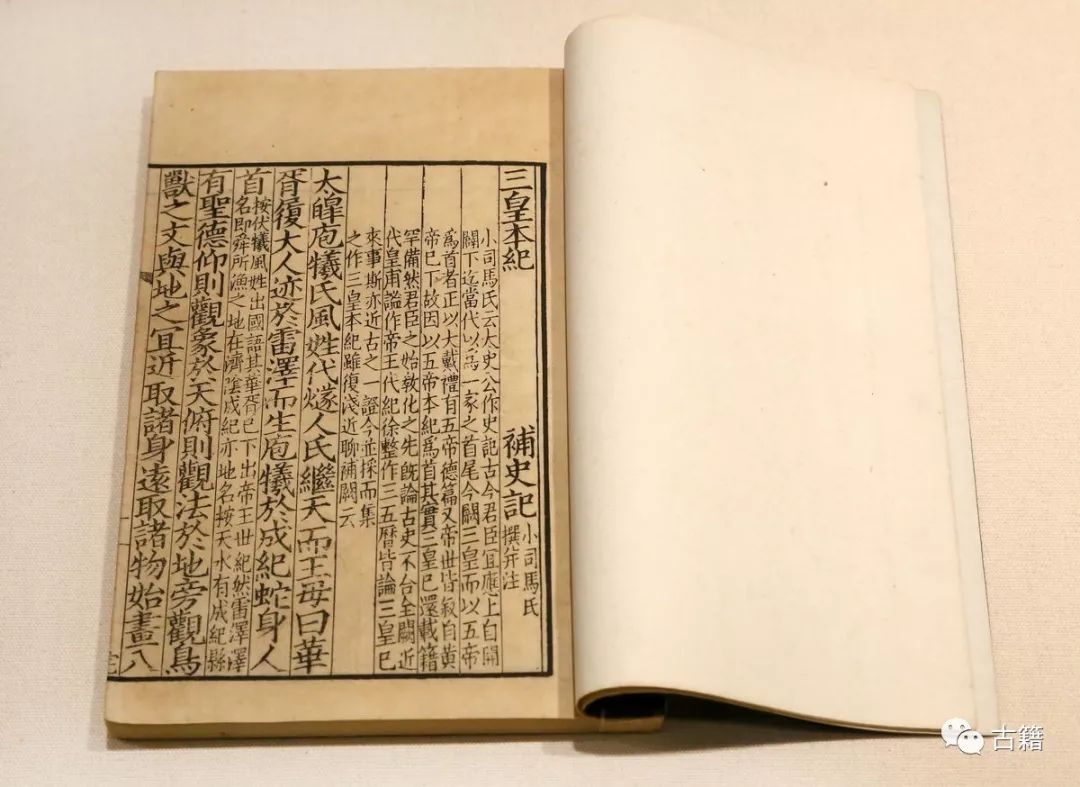 三皇本紀 補史記 小司馬氏
撰并注
小司馬氏云太史公作史記古今君臣冝應上自開
闢下迄當代以爲一家之首尾今闕三皇而以五帝
爲首者正以大戴禮有五帝德篇又帝世皆叙自黃
帝已下故因以五帝本紀爲首其實三皇已還載籍
罕備然君臣之始敎化之先旣論古史不合全闕近
代皇甫謐作帝王代紀徐整作三五曆皆論三皇已
來事斯亦近古之一證今並採而集
之作三皇本紀雖復淺近聊補闕云
太皥庖犧氏風姓代燧人氏繼天而王母曰華
胥履大人迹於雷澤而生庖犧於成紀蛇身人
首 按伏犧風姓出國語其華胥已下出帝王世紀然雷澤澤
名即舜所漁之地在濟陰成紀亦地名按天水有成紀縣
有聖德仰則觀象於天俯則觀法於地旁觀鳥
獸之文與地之冝近取諸身遠取諸物始畫八
古籍